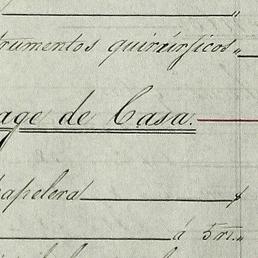 "
trumentos quirúrjicos "
age de Casa.
papelera $
á 5 rs. "